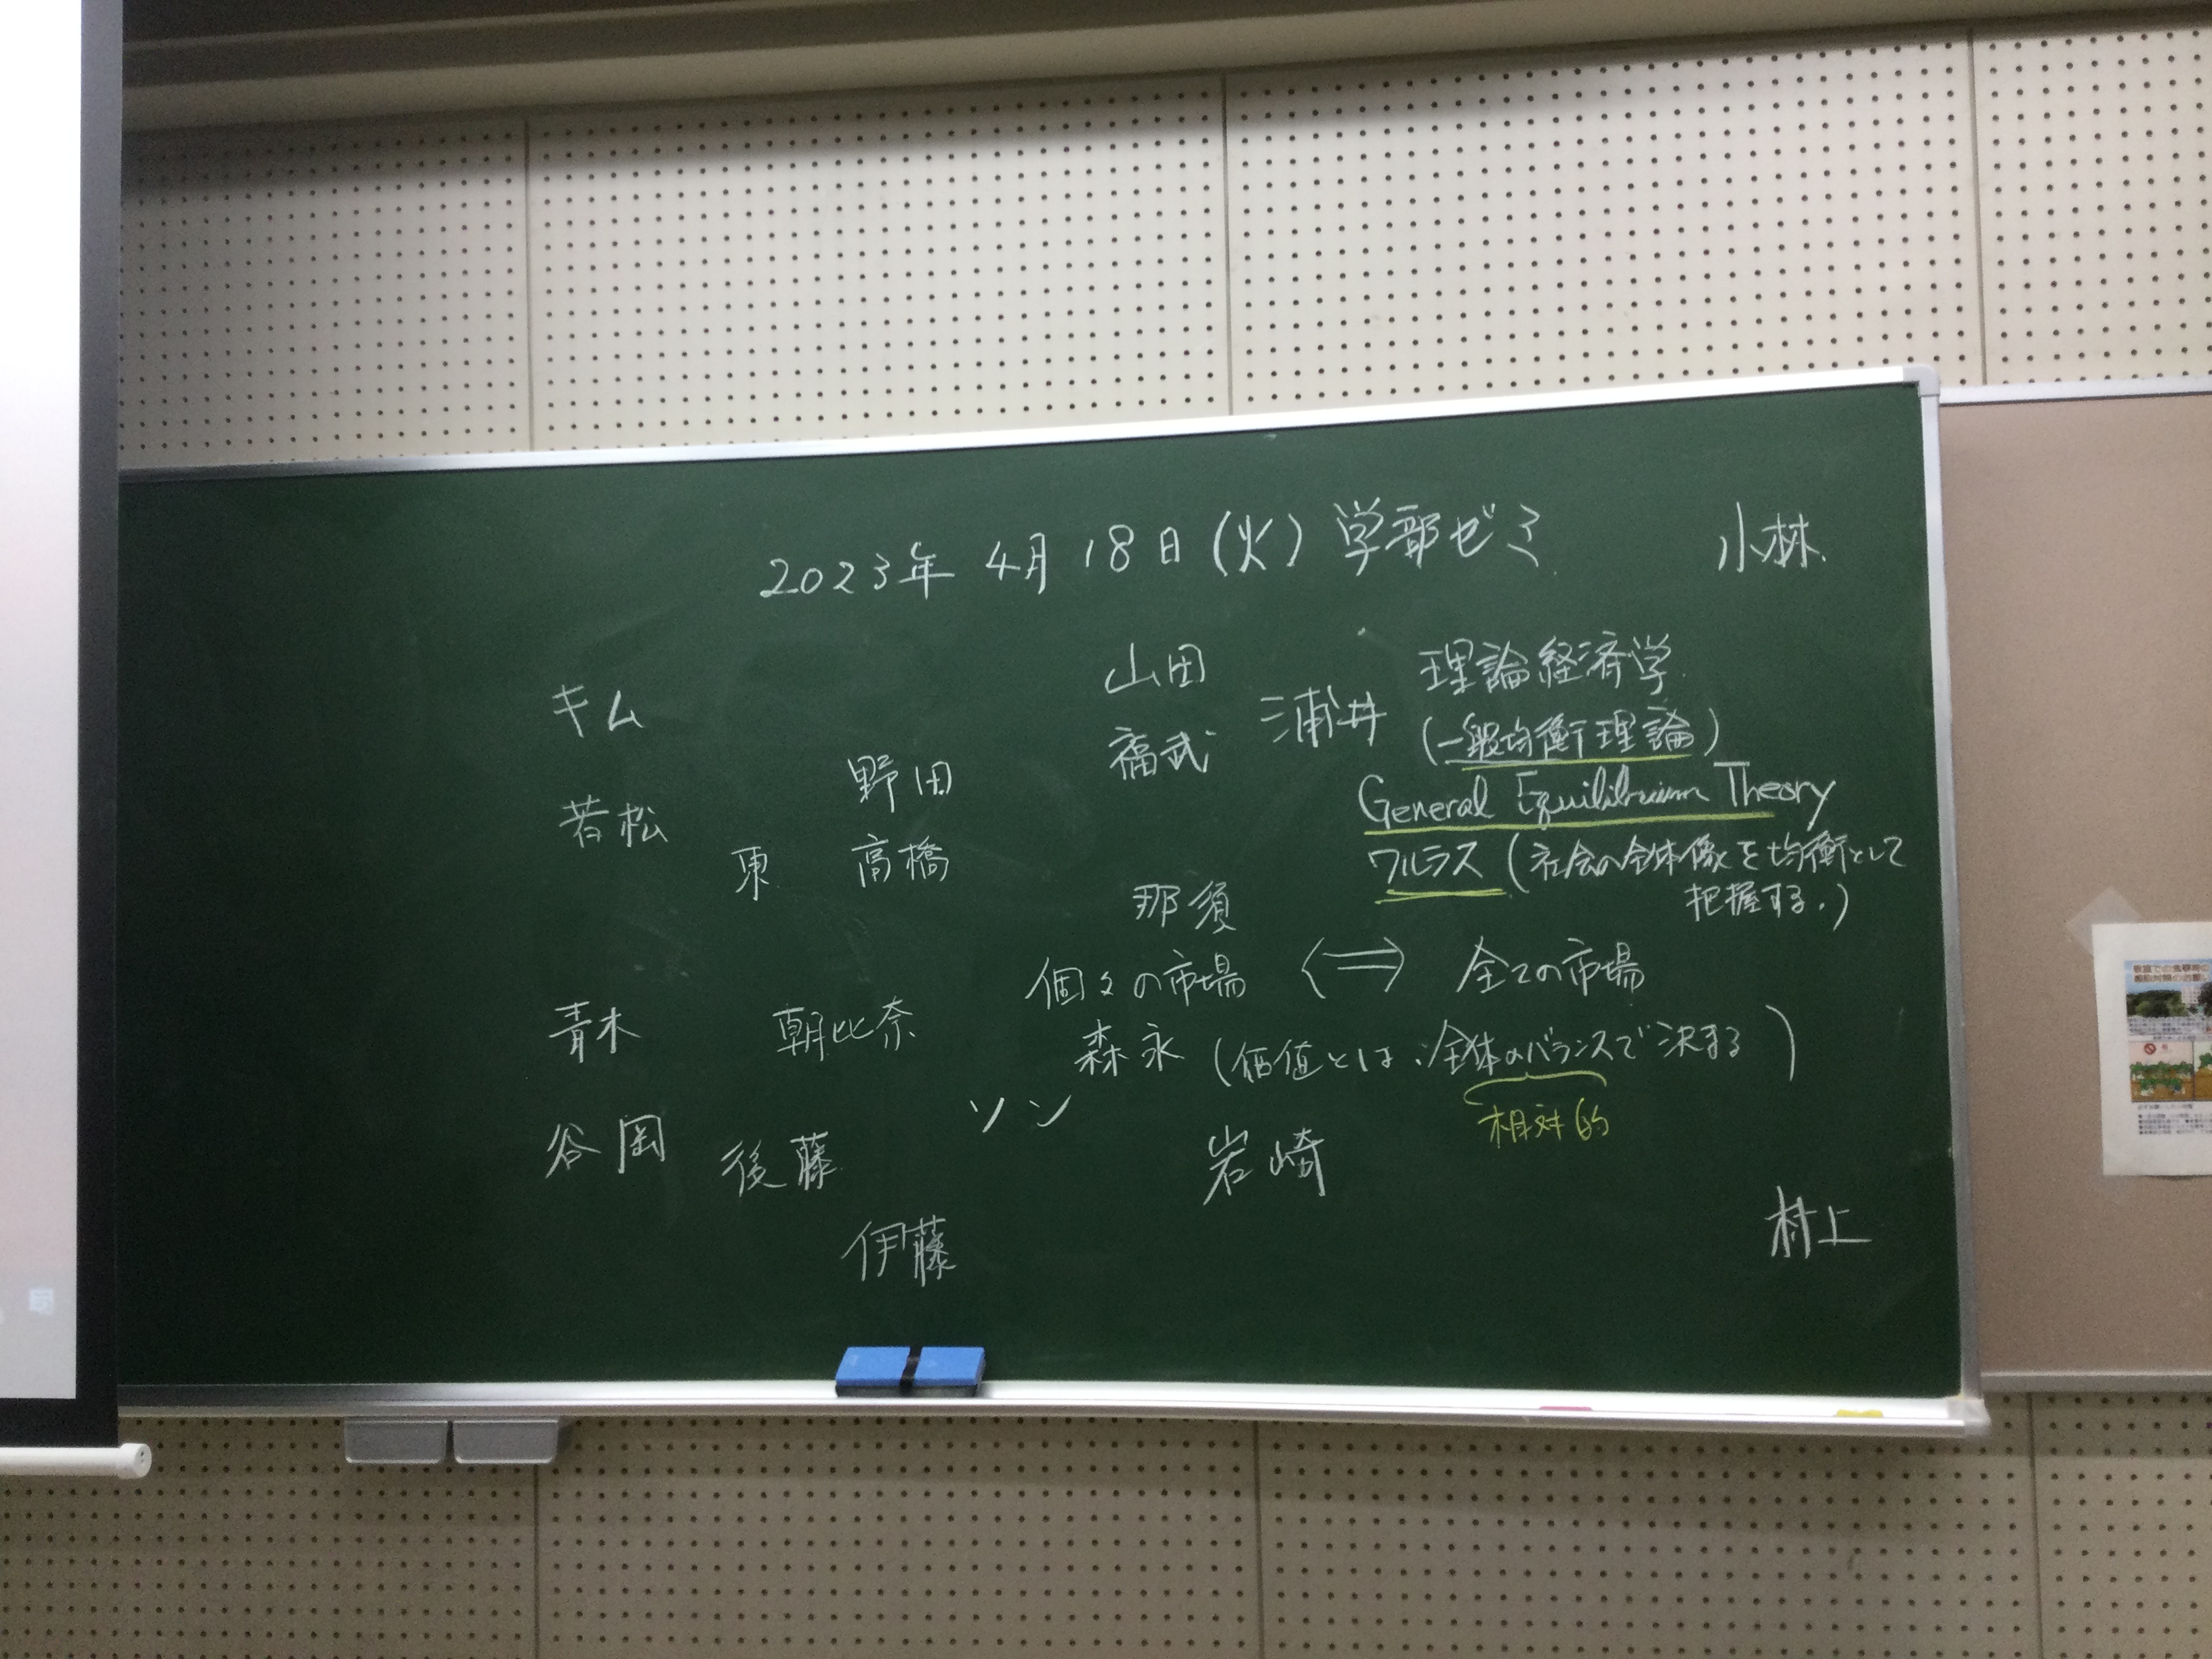 2023年 4月 18日(火) 学部ゼミ
小林
山田
キム
浦井
理論経済学
福武
(一般均衡理論)
野田
General Equilibrium Theory
若松
東
高橋
ワルラス (社会の全体像を均衡として
把握する.)
那須
個々の市場 ⟺ 全ての市場
青木
朝比奈
森永
(価値とは、全体のバランスで決まる)
相対的
ソン
谷岡
後藤
岩崎
伊藤
村上